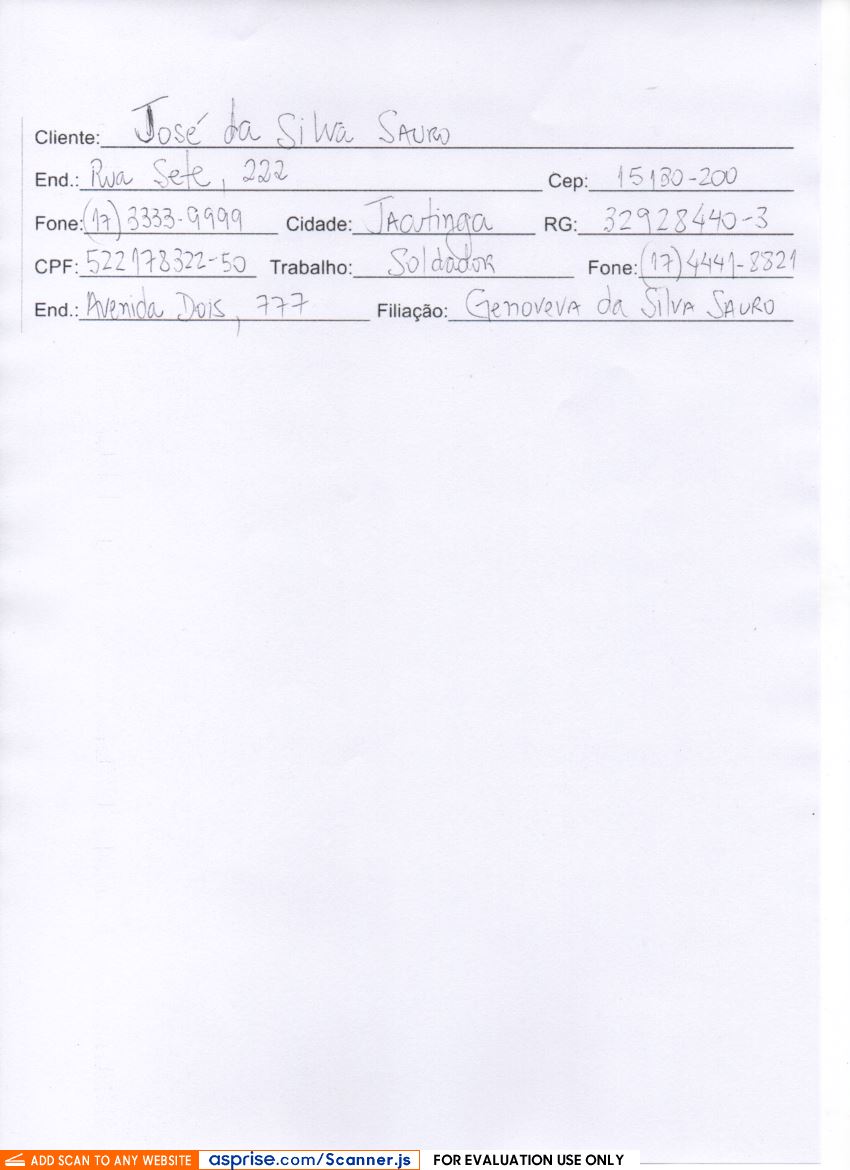 Cliente: José da Silva Sauro
End.: Rua Sete, 222 Cep: 15130-200
Fone: (17) 3333-9999 Cidade: Jacutinga RG: 32928440-3
CPF: 522178322-50 Trabalho: Soldador Fone: (17) 4441-8821
End.: Avenida Dois, 777 Filiação: Genoveva da Silva Sauro
ADD SCAN TO ANY WEBSITE asprise.com/Scanner.js FOR EVALUATION USE ONLY